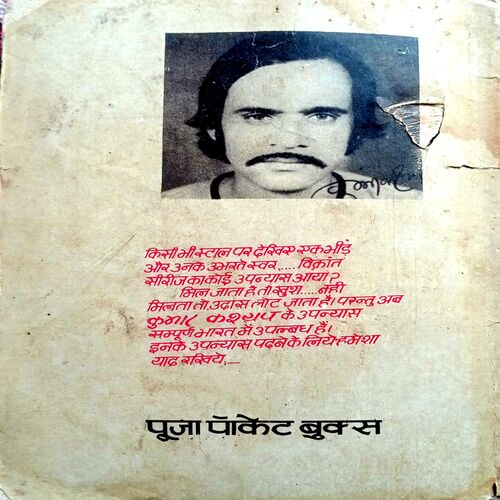 किसी भी स्टाल पर देखिए एक भीड़
और उनके उभरते स्वर,.... विक्रांत
सीरीज का कोई उपन्यास आया?
मिल जाता है तो खुश.....नहीं
मिलता तो उदास लौट जाता है। परन्तु अब
कुमार कश्यप के उपन्यास
सम्पूर्ण भारत में उपलब्ध हैं।
इनके उपन्यास पढ़ने के लिये हमेशा
याद रखिये,....
पूजा पॉकेट बुक्स